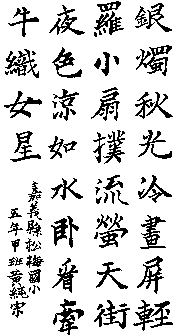 銀燭秋光冷畫屏輕
羅小扇撲流螢天街
夜色涼如水卧看牽
牛織女星
嘉義縣松梅國小
五年甲班黃純宋